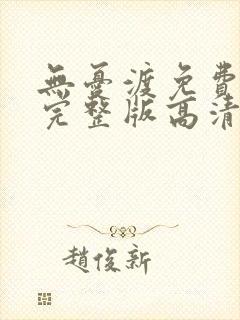 無憂渡免費
完整版高清
趙俊新